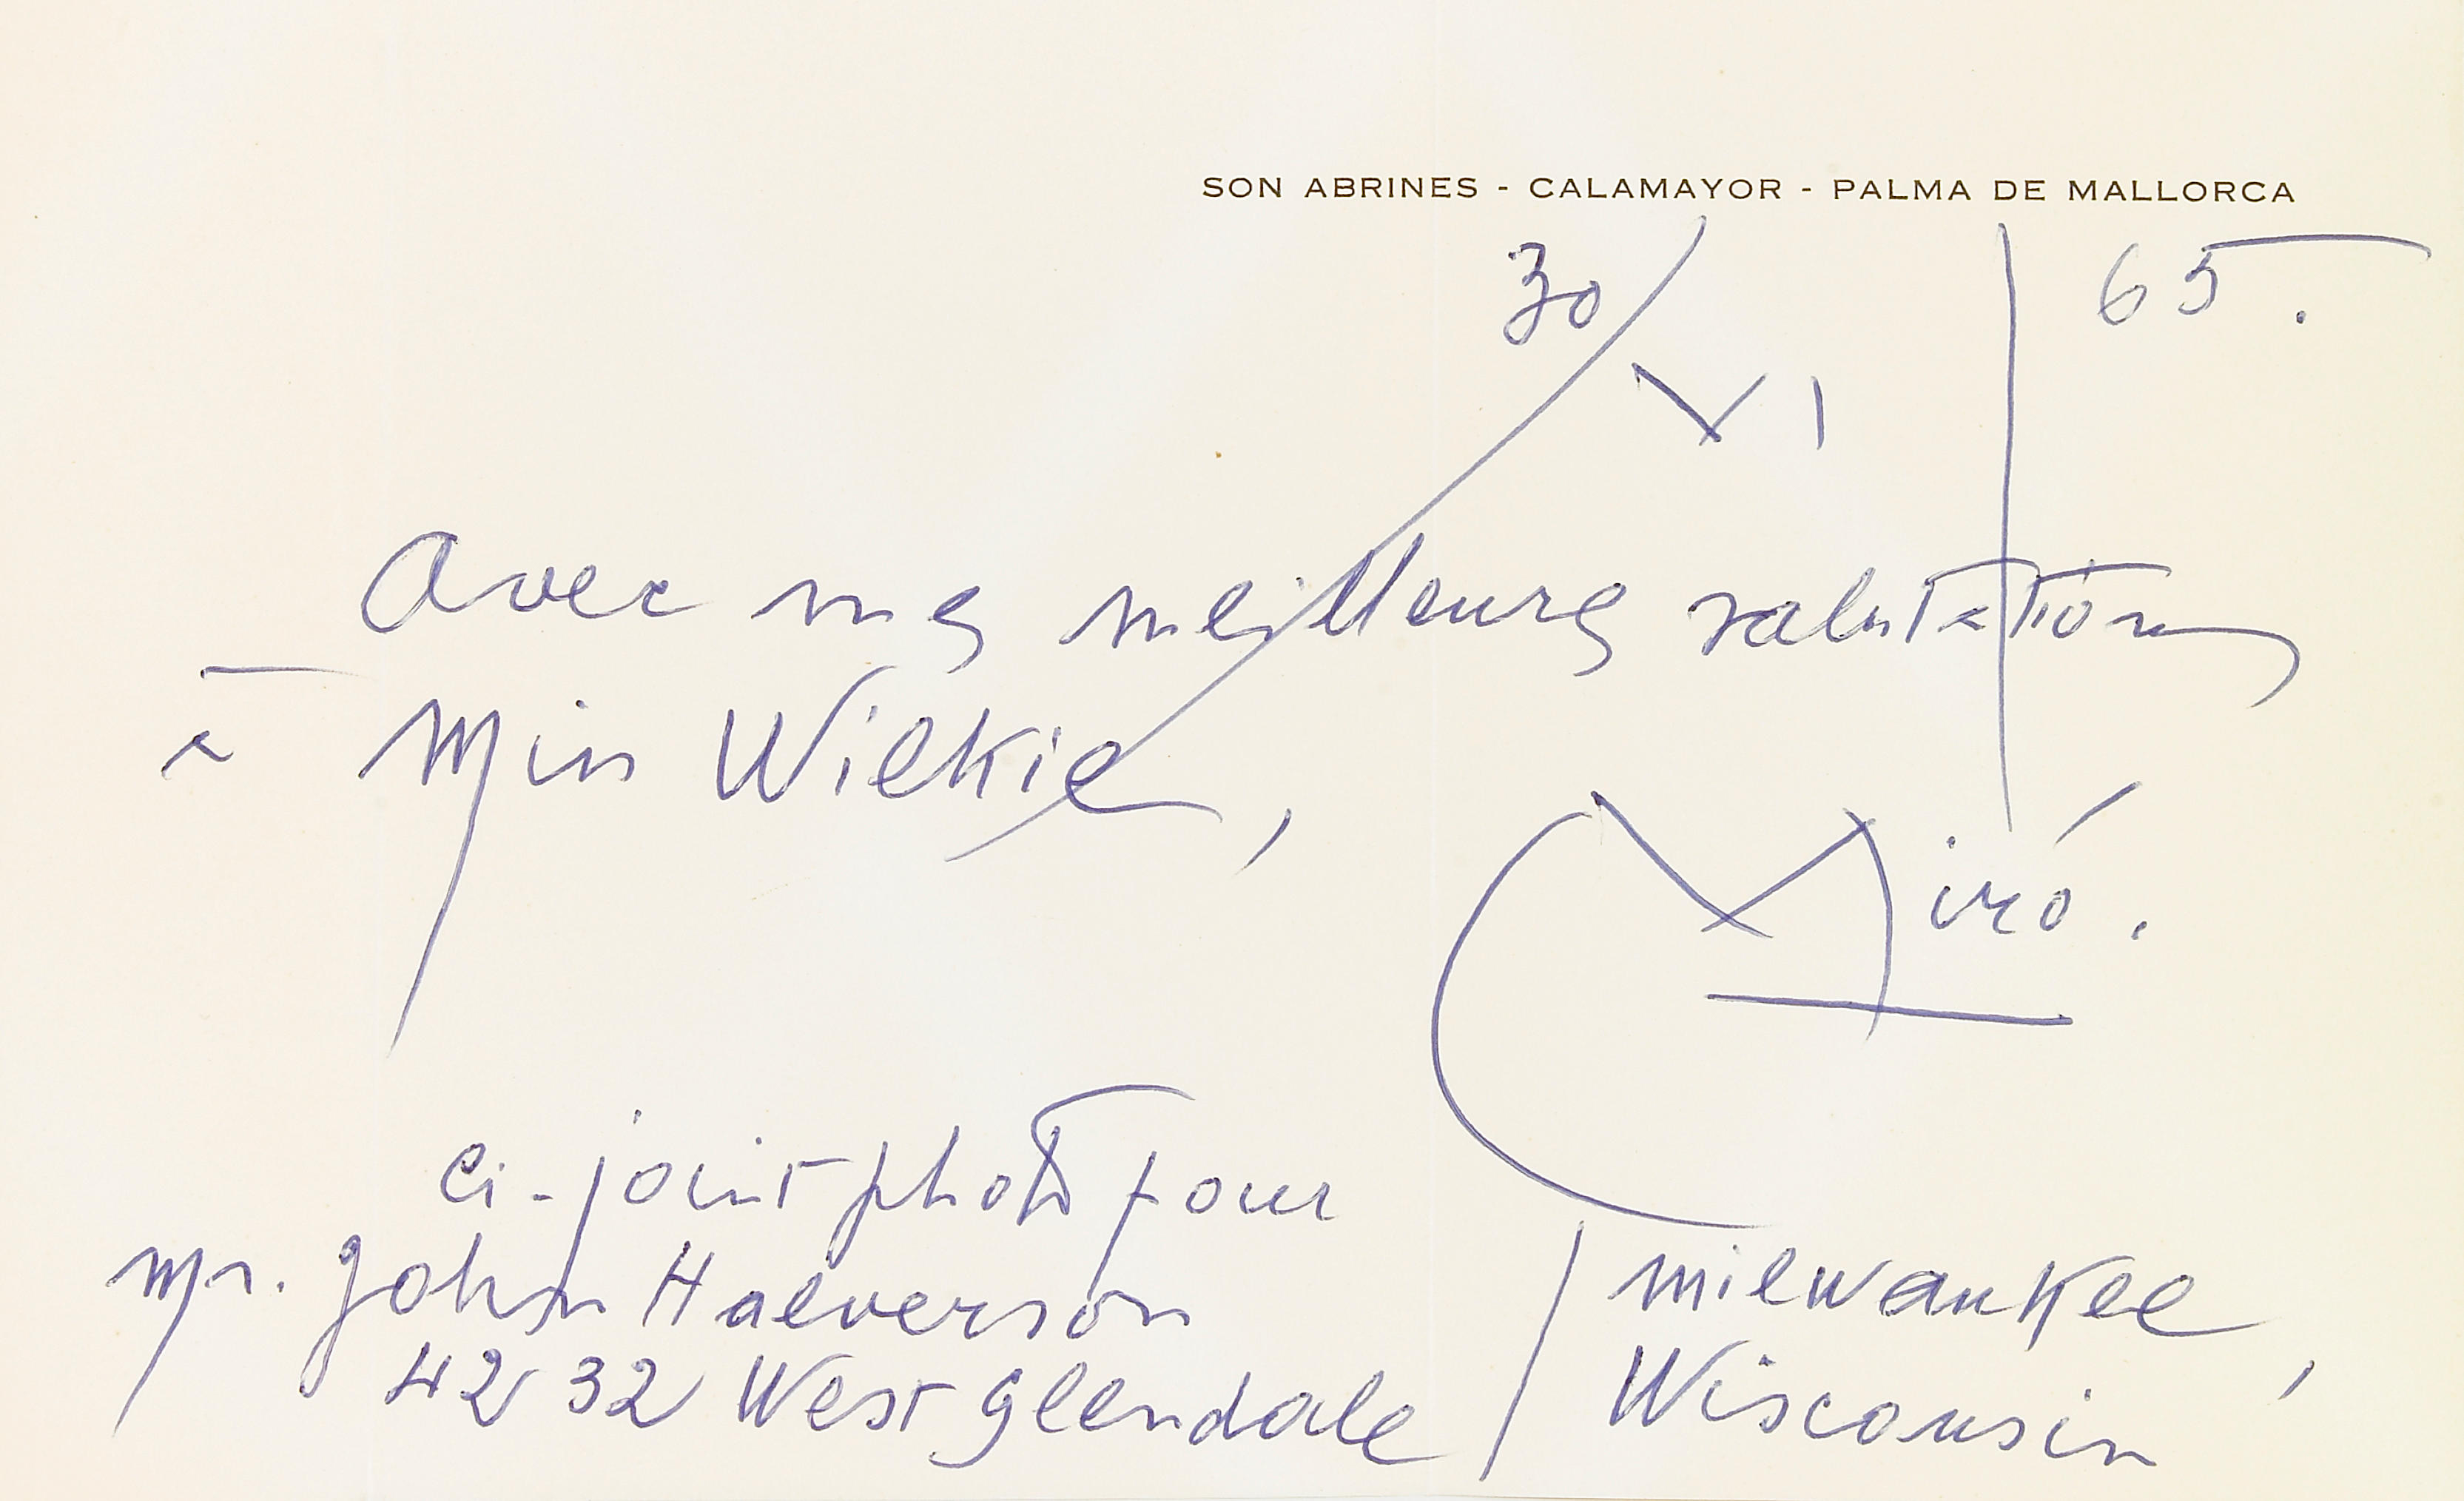 SON ABRINES - CALAMAYOR - PALMA DE MALLORCA
30/VI|65.
Avec mes meilleures salutations
à Miss Wilkie,
Miró.
ci-joint photo pour
Mr. John Halverson
4232 West Glendale / Milwaukee,
Wisconsin